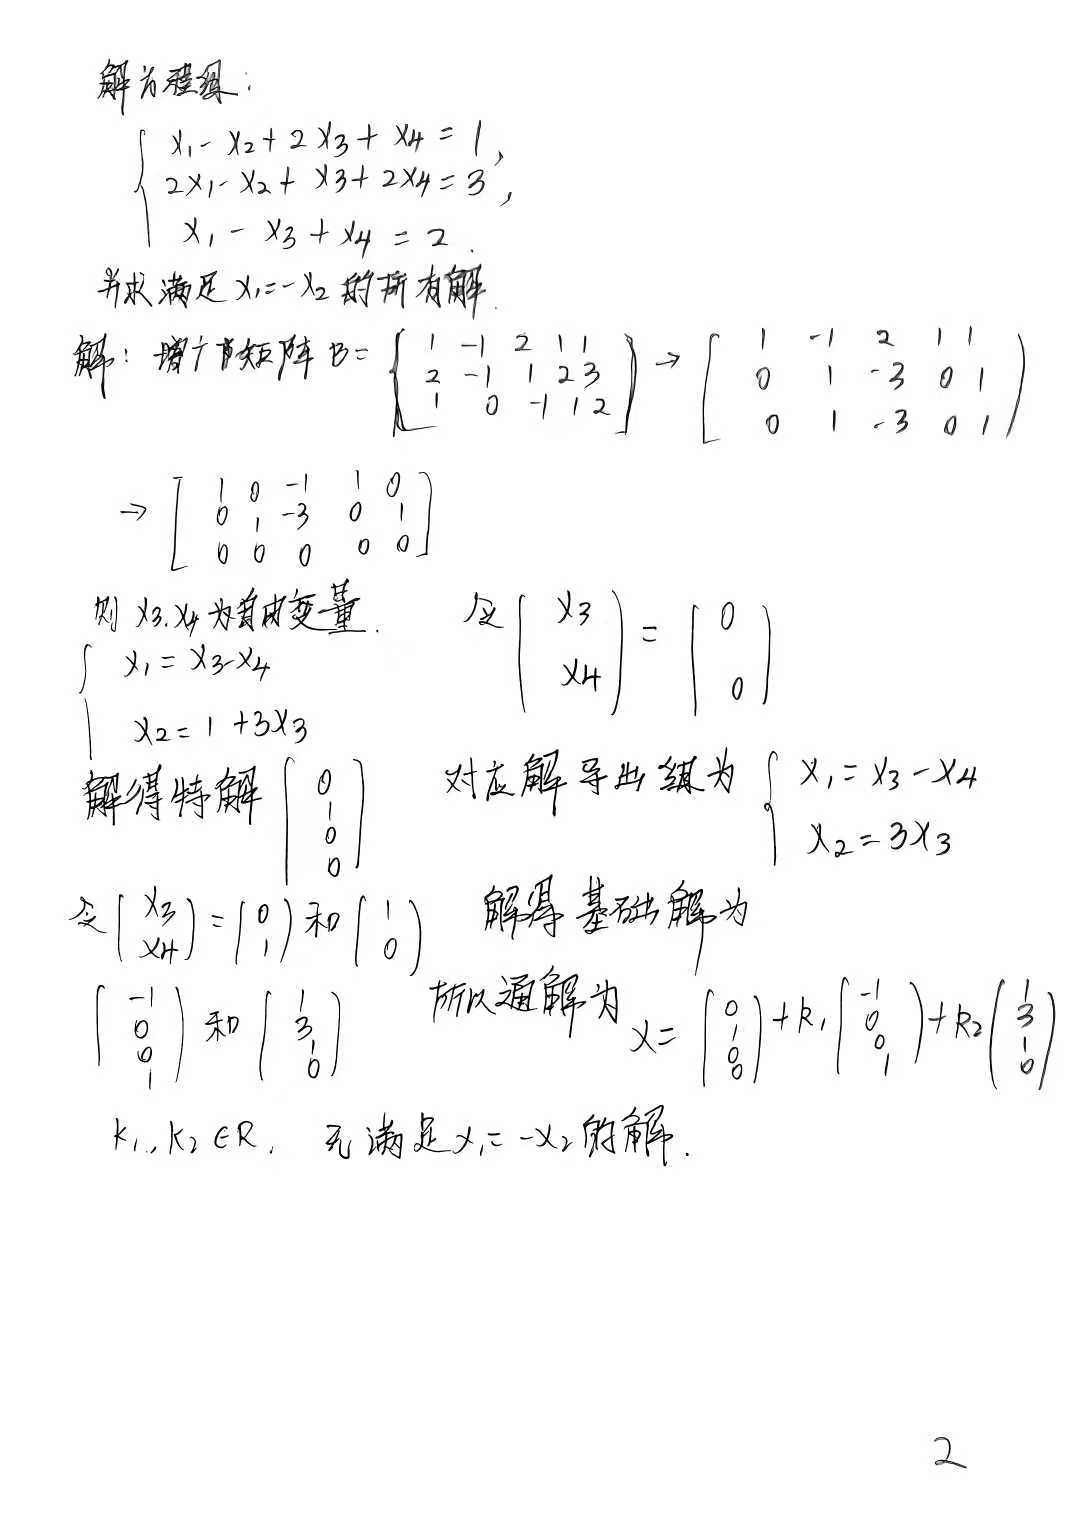 解方程组:
x₁ - x₂ + 2x₃ + x₄ = 1,
2x₁ - x₂ + x₃ + 2x₄ = 3,
x₁ - x₃ + x₄ = 2.
并求满足 x₁=-x₂ 的所有解.
解: 增广矩阵 B= [1 -1 2 1 1; 2 -1 1 2 3; 1 0 -1 1 2] → [1 -1 2 1 1; 0 1 -3 0 1; 0 1 -3 0 1]
→ [1 0 -1 1 0; 0 1 -3 0 1; 0 0 0 0 0]
则 x₃.x₄ 为自由变量. 令 (x₃ x₄) = (0 0)
x₁ = x₃-x₄
x₂ = 1+3x₃
解得特解 (0 1 0 0) 对应解导出组为 { x₁ = x₃-x₄
x₂ = 3x₃
令 (x₃ x₄) = (0 1) 和 (1 0) 解得基础解为
(-1 0 0 1) 和 (1 3 1 0) 所以通解为 x= (0 1 0 0) + k₁ (-1 0 0 1) + k₂ (1 3 1 0)
k₁,k₂∈R. 无满足 x₁=-x₂ 的解.
2